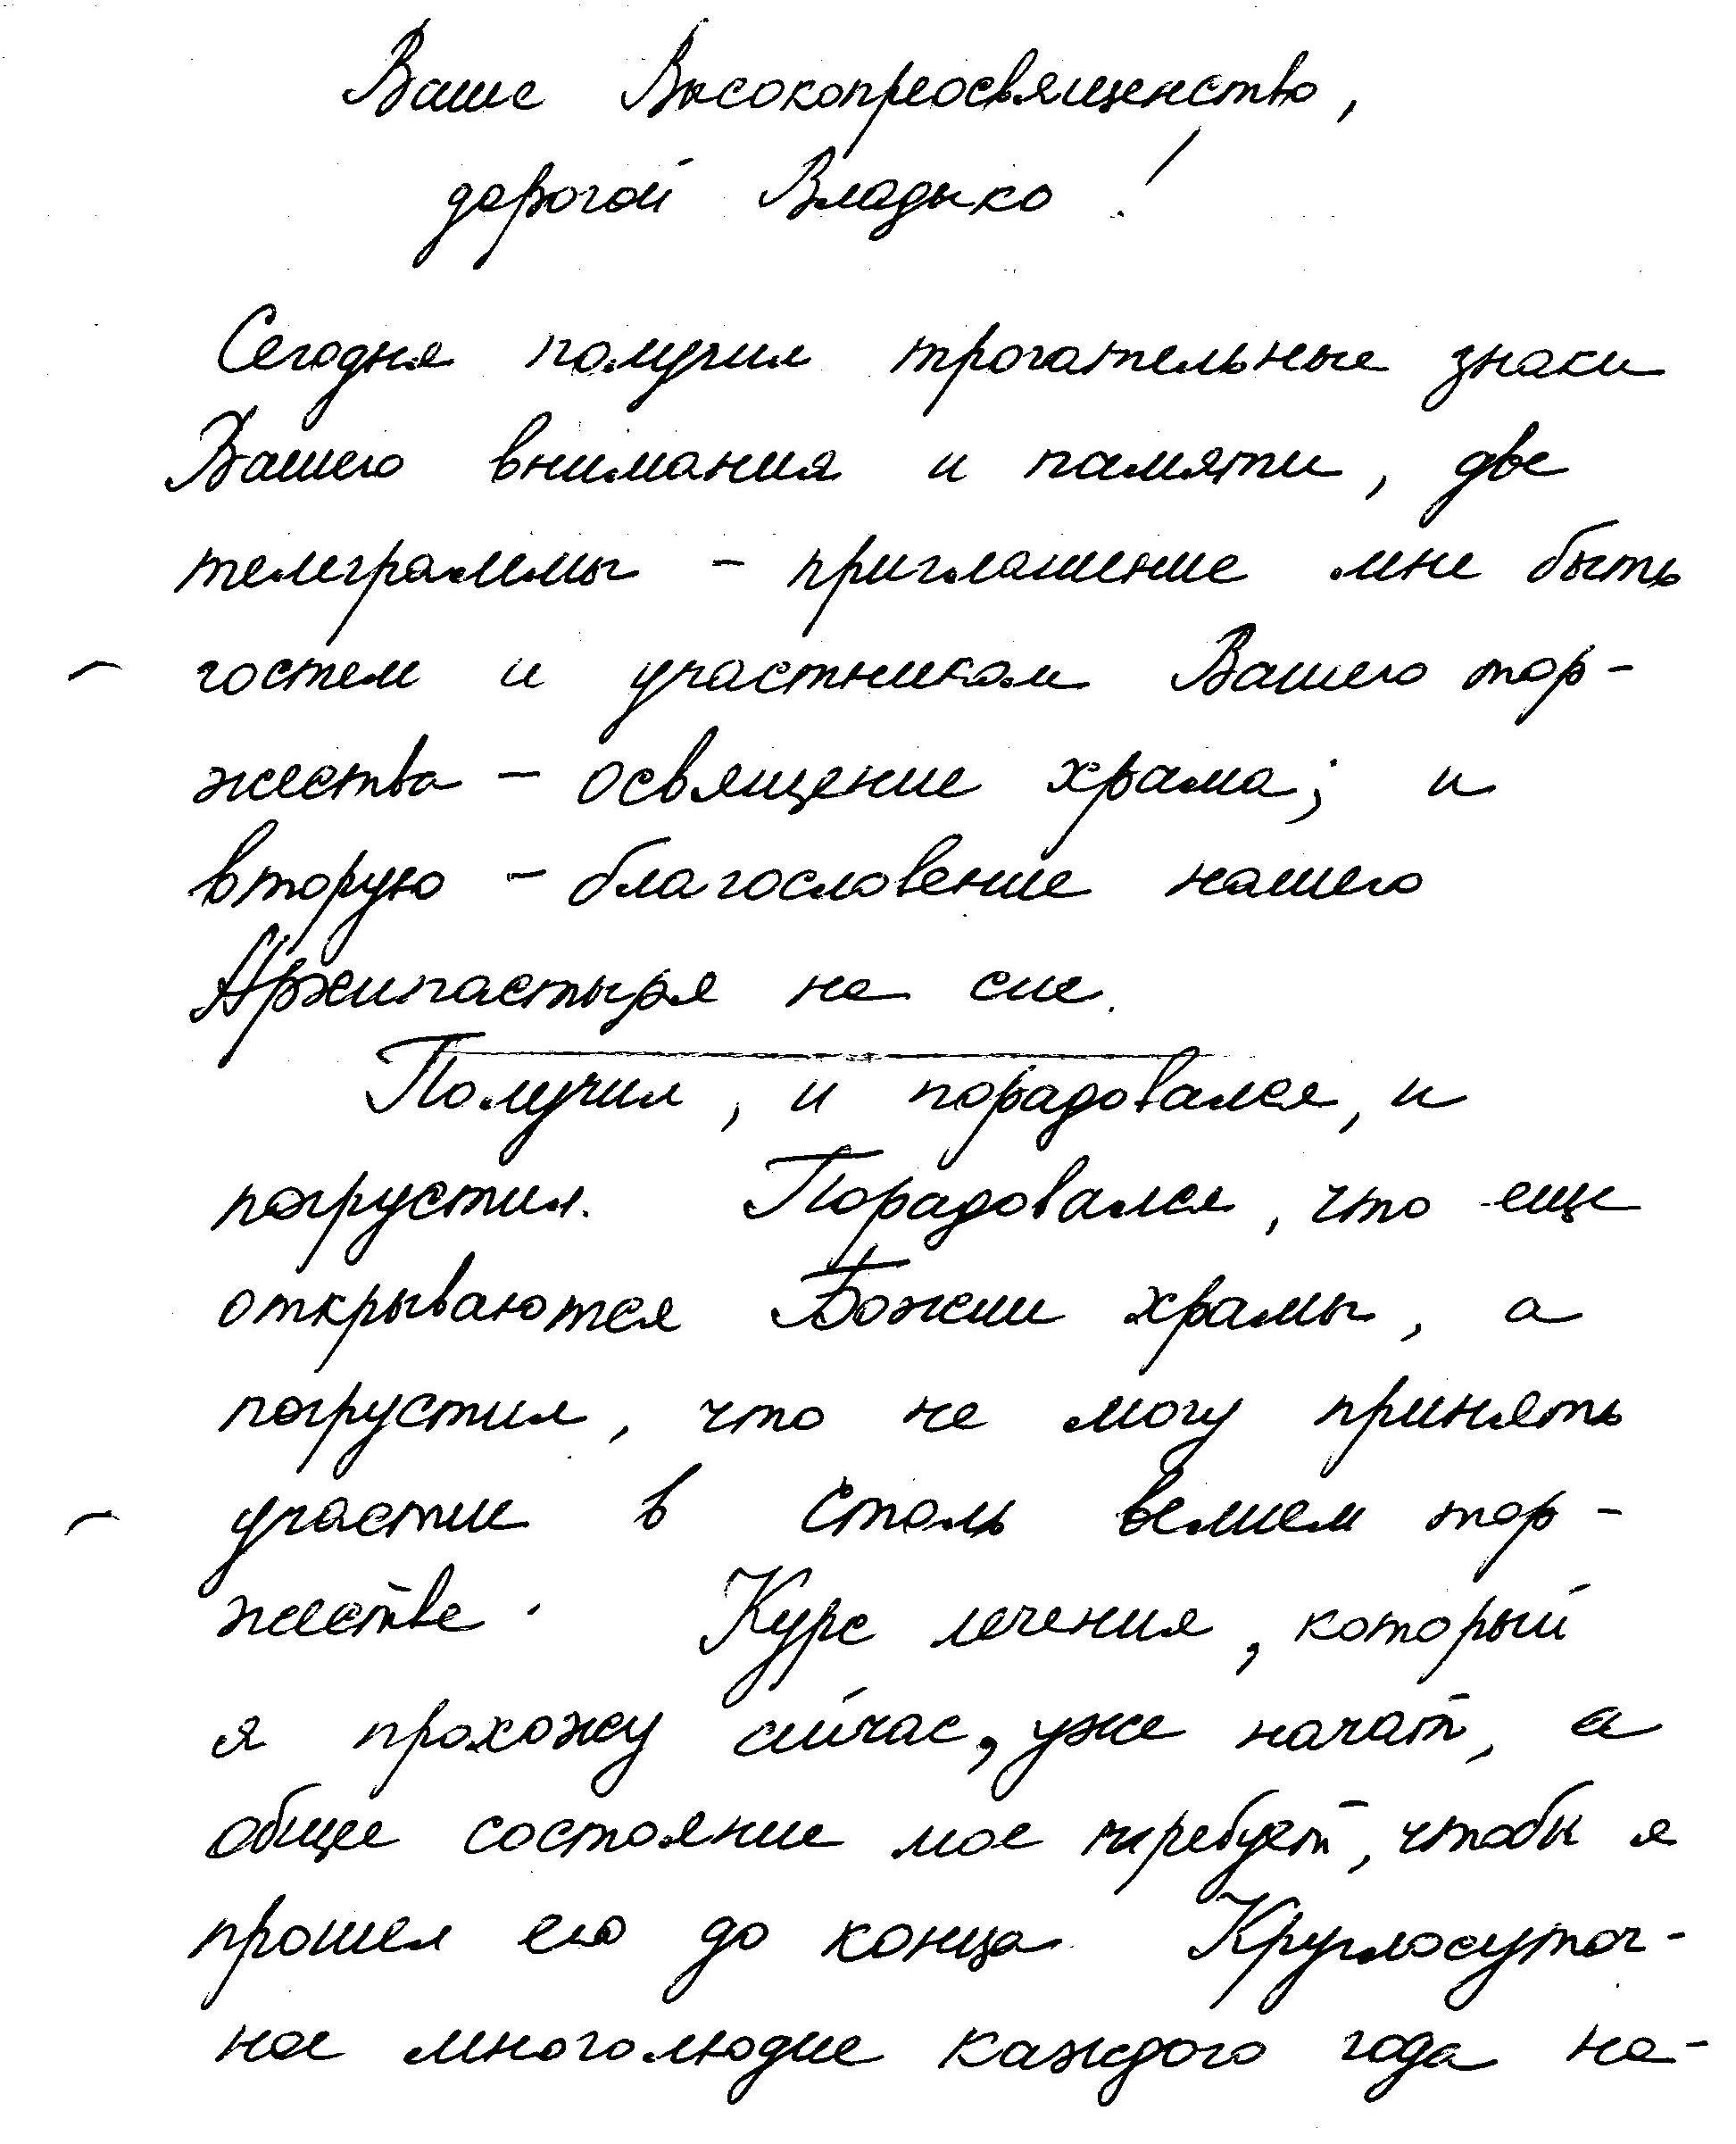 Ваше Высокопреосвященство,
дорогой Владыко!
Сегодня получил трогательные знаки
Вашего внимания и памяти, две
телеграммы - приглашение мне быть
гостем и участником Вашего тор-
жества - освящение храма; и
вторую - благословение нашего
Архипастыря на сие.
Получил, и порадовался, и
погрустил. Порадовался, что еще
открываются Божии храмы, а
погрустил, что не могу принять
участие в столь велием тор-
жестве. Курс лечения, который
я прохожу сейчас, уже начат, а
общее состояние мое требует, чтобы я
прошел его до конца. Круглосуточ-
ное многолюдие каждого года на-